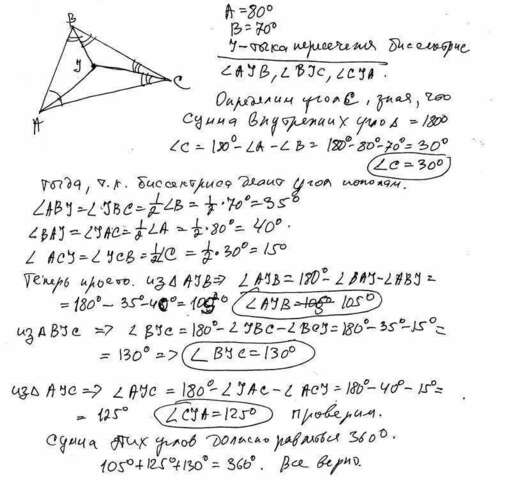 B
A = 80°
B = 70°
У - точка пересечения биссектрис
∠АУВ, ∠ВУС, ∠СУА.
У
С
А
Определим угол С, зная, что
Сумма внутренних углов = 180°
∠С = 180° - ∠А - ∠В = 180° - 80° - 70° = 30°
∠С = 30°
тогда, т.к. биссектриса делит угол пополам.
∠АВУ = ∠УВС = 1/2 ∠В = 1/2 · 70° = 35°
∠ВАУ = ∠УАС = 1/2 ∠А = 1/2 · 80° = 40°.
∠АСУ = ∠УСВ = 1/2 ∠С = 1/2 · 30° = 15°
Теперь просто. из Δ АУВ ⇒ ∠АУВ = 180° - ∠ВАУ - ∠АВУ =
= 180° - 35° - 40° = 105° ∠АУВ = 105° 105°
из Δ ВУС ⇒ ∠ВУС = 180° - ∠УВС - ∠ВСУ = 180° - 35° - 15° =
= 130° ⇒ ∠ВУС = 130°
из Δ АУС ⇒ ∠АУС = 180° - ∠УАС - ∠АСУ = 180° - 40° - 15° =
= 125° ∠СУА = 125° Проверим.
Сумма этих углов должна равняться 360°.
105° + 125° + 130° = 360°. Все верно.